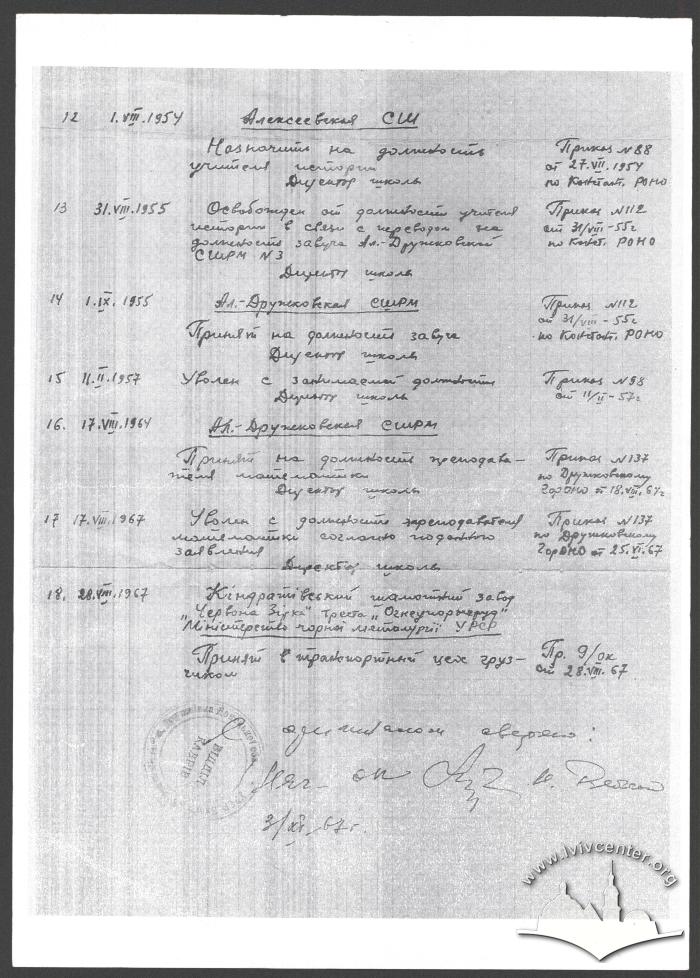 12 1.VIII.1954 Алексеевская СШ
Назначить на должность Приказ №88
учителя истории от 27.VII.1954
Директор школы по Констант. РОНО
13 31.VIII.1955 Освобожден от должности учителя Приказ №112
истории в связи с переводом на от 31/VIII-55г
должность завуча Ал.-Дружковской по Конст. РОНО
СШРМ №3
Директор школы
14 1.IX.1955 Ал.-Дружковская СШРМ Приказ №112
от 31/VIII-55г
Принят на должность завуча по Констант. РОНО
Директор школы
15 11.II.1957 Уволен с занимаемой должности Приказ №98
Директор школы от 11/II-57г
16. 17.VIII.1964 Ал.-Дружковская СШРМ
Принят на должность преподава- Приказ №137
теля математики по Дружковскому
Директор школы ГорОНО от 18.VIII.64г
17 17.VIII.1967 Уволен с должности преподавателя Приказ №137
математики согласно поданого по Дружковскому
заявления ГорОНО от 25.VI.67
Директор школы
18. 28.VIII.1967 Кіндратівський шамотний завод
"Червона Зірка" треста "Огнеупорнеруд"
Міністерство чорної металургії УРСР
Принят в транспортный цех груз- Пр. 9/ок
чиком от 28.VIII.67
ВІДДІЛ
КАДРІВ
С оригиналом сверено:
Нач. ОК
3/XI.67г.
www.lvivcenter.org